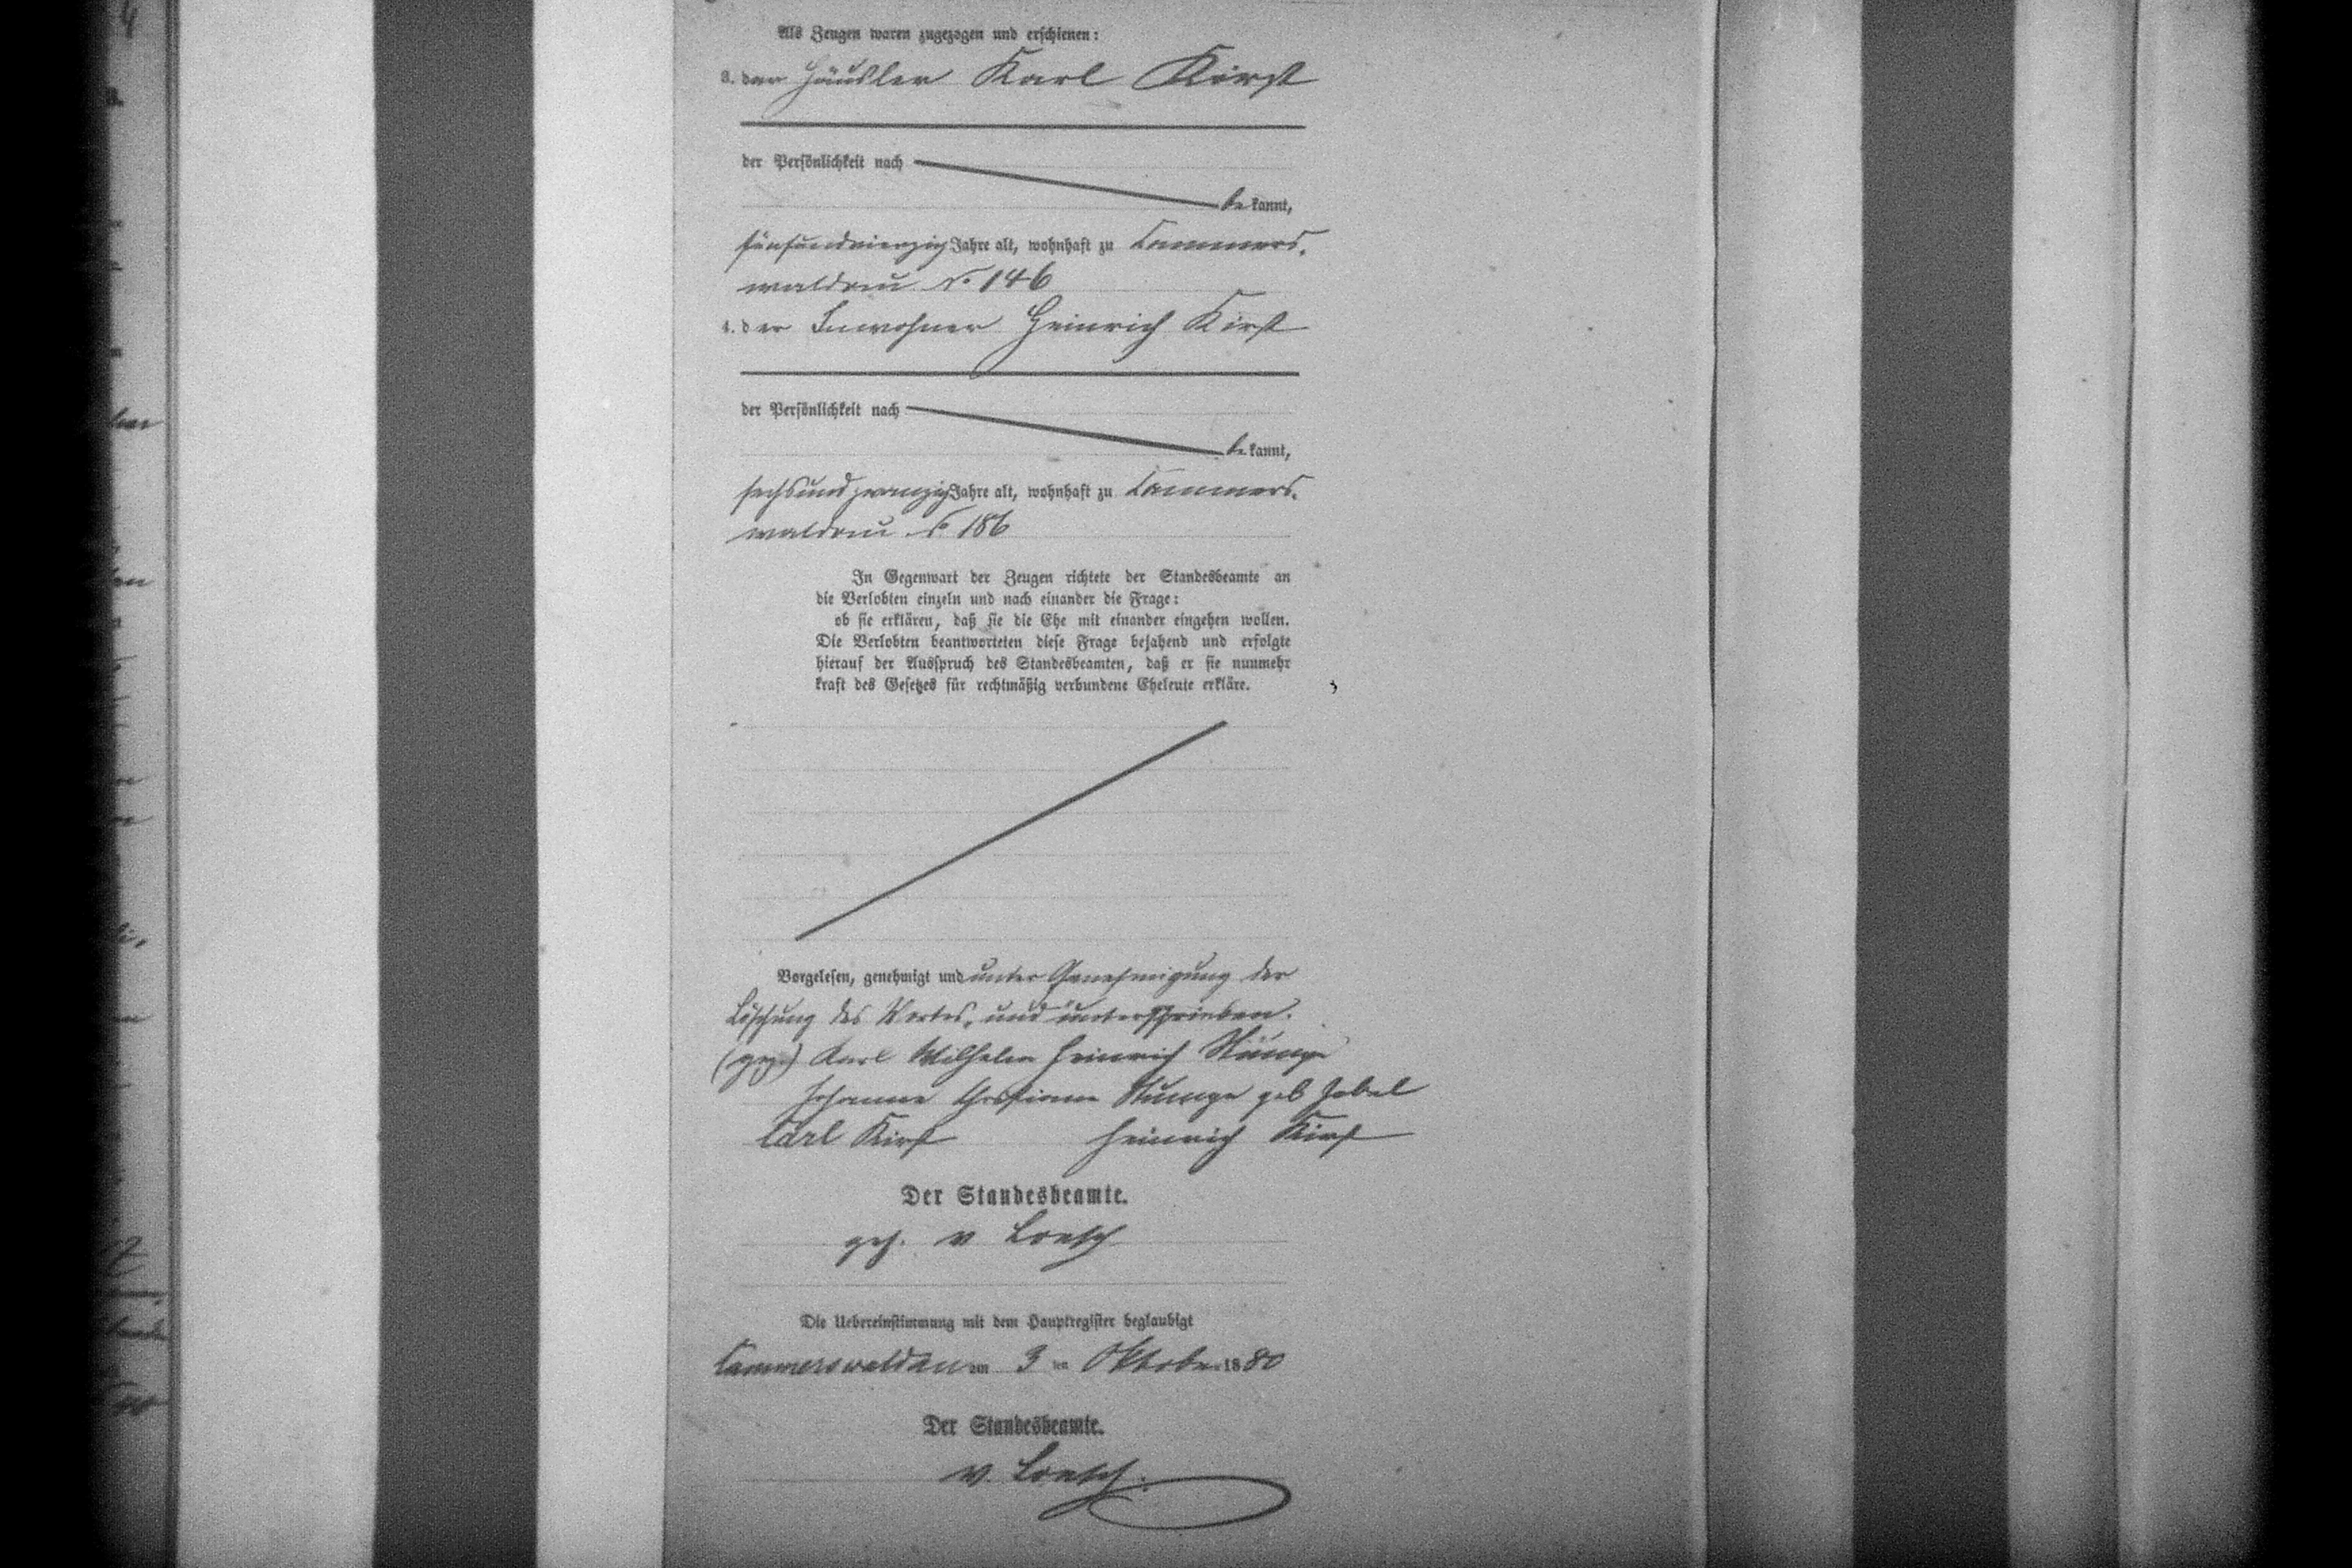 Als Zeugen waren zugezogen und erschienen:
3. der Häusler Karl Kirst
der Persönlichkeit nach
be kannt,
fünfundvierzig Jahre alt, wohnhaft zu Cammers-
waldau No 146
4. der Inwohner Heinrich Kirst
der Persönlichkeit nach
be kannt,
sechsundzwanzig Jahre alt, wohnhaft zu Cammers-
waldau No 186
In Gegenwart der Zeugen richtete der Standesbeamte an
die Verlobten einzeln und nach einander die Frage:
ob sie erklären, daß sie die Ehe mit einander eingehen wollen.
Die Verlobten beantworteten diese Frage bejahend und erfolgte
hierauf der Ausspruch des Standesbeamten, daß er sie nunmehr
kraft des Gesetzes für rechtmäßig verbundene Eheleute erkläre.
Vorgelesen, genehmigt und unter Genehmigung der
Löschung des Wortes „und unterschrieben.
(gez.) Karl Wilhelm Heinrich Stumpe
Johanne Christiane Stumpe geb Zobel
Carl Kirst Heinrich Kirst
Der Standesbeamte.
gez. v Loesch
Die Uebereinstimmung mit dem Hauptregister beglaubigt
Cammerswaldau am 3 ten Oktober 1880
Der Standesbeamte.
v. Loesch.